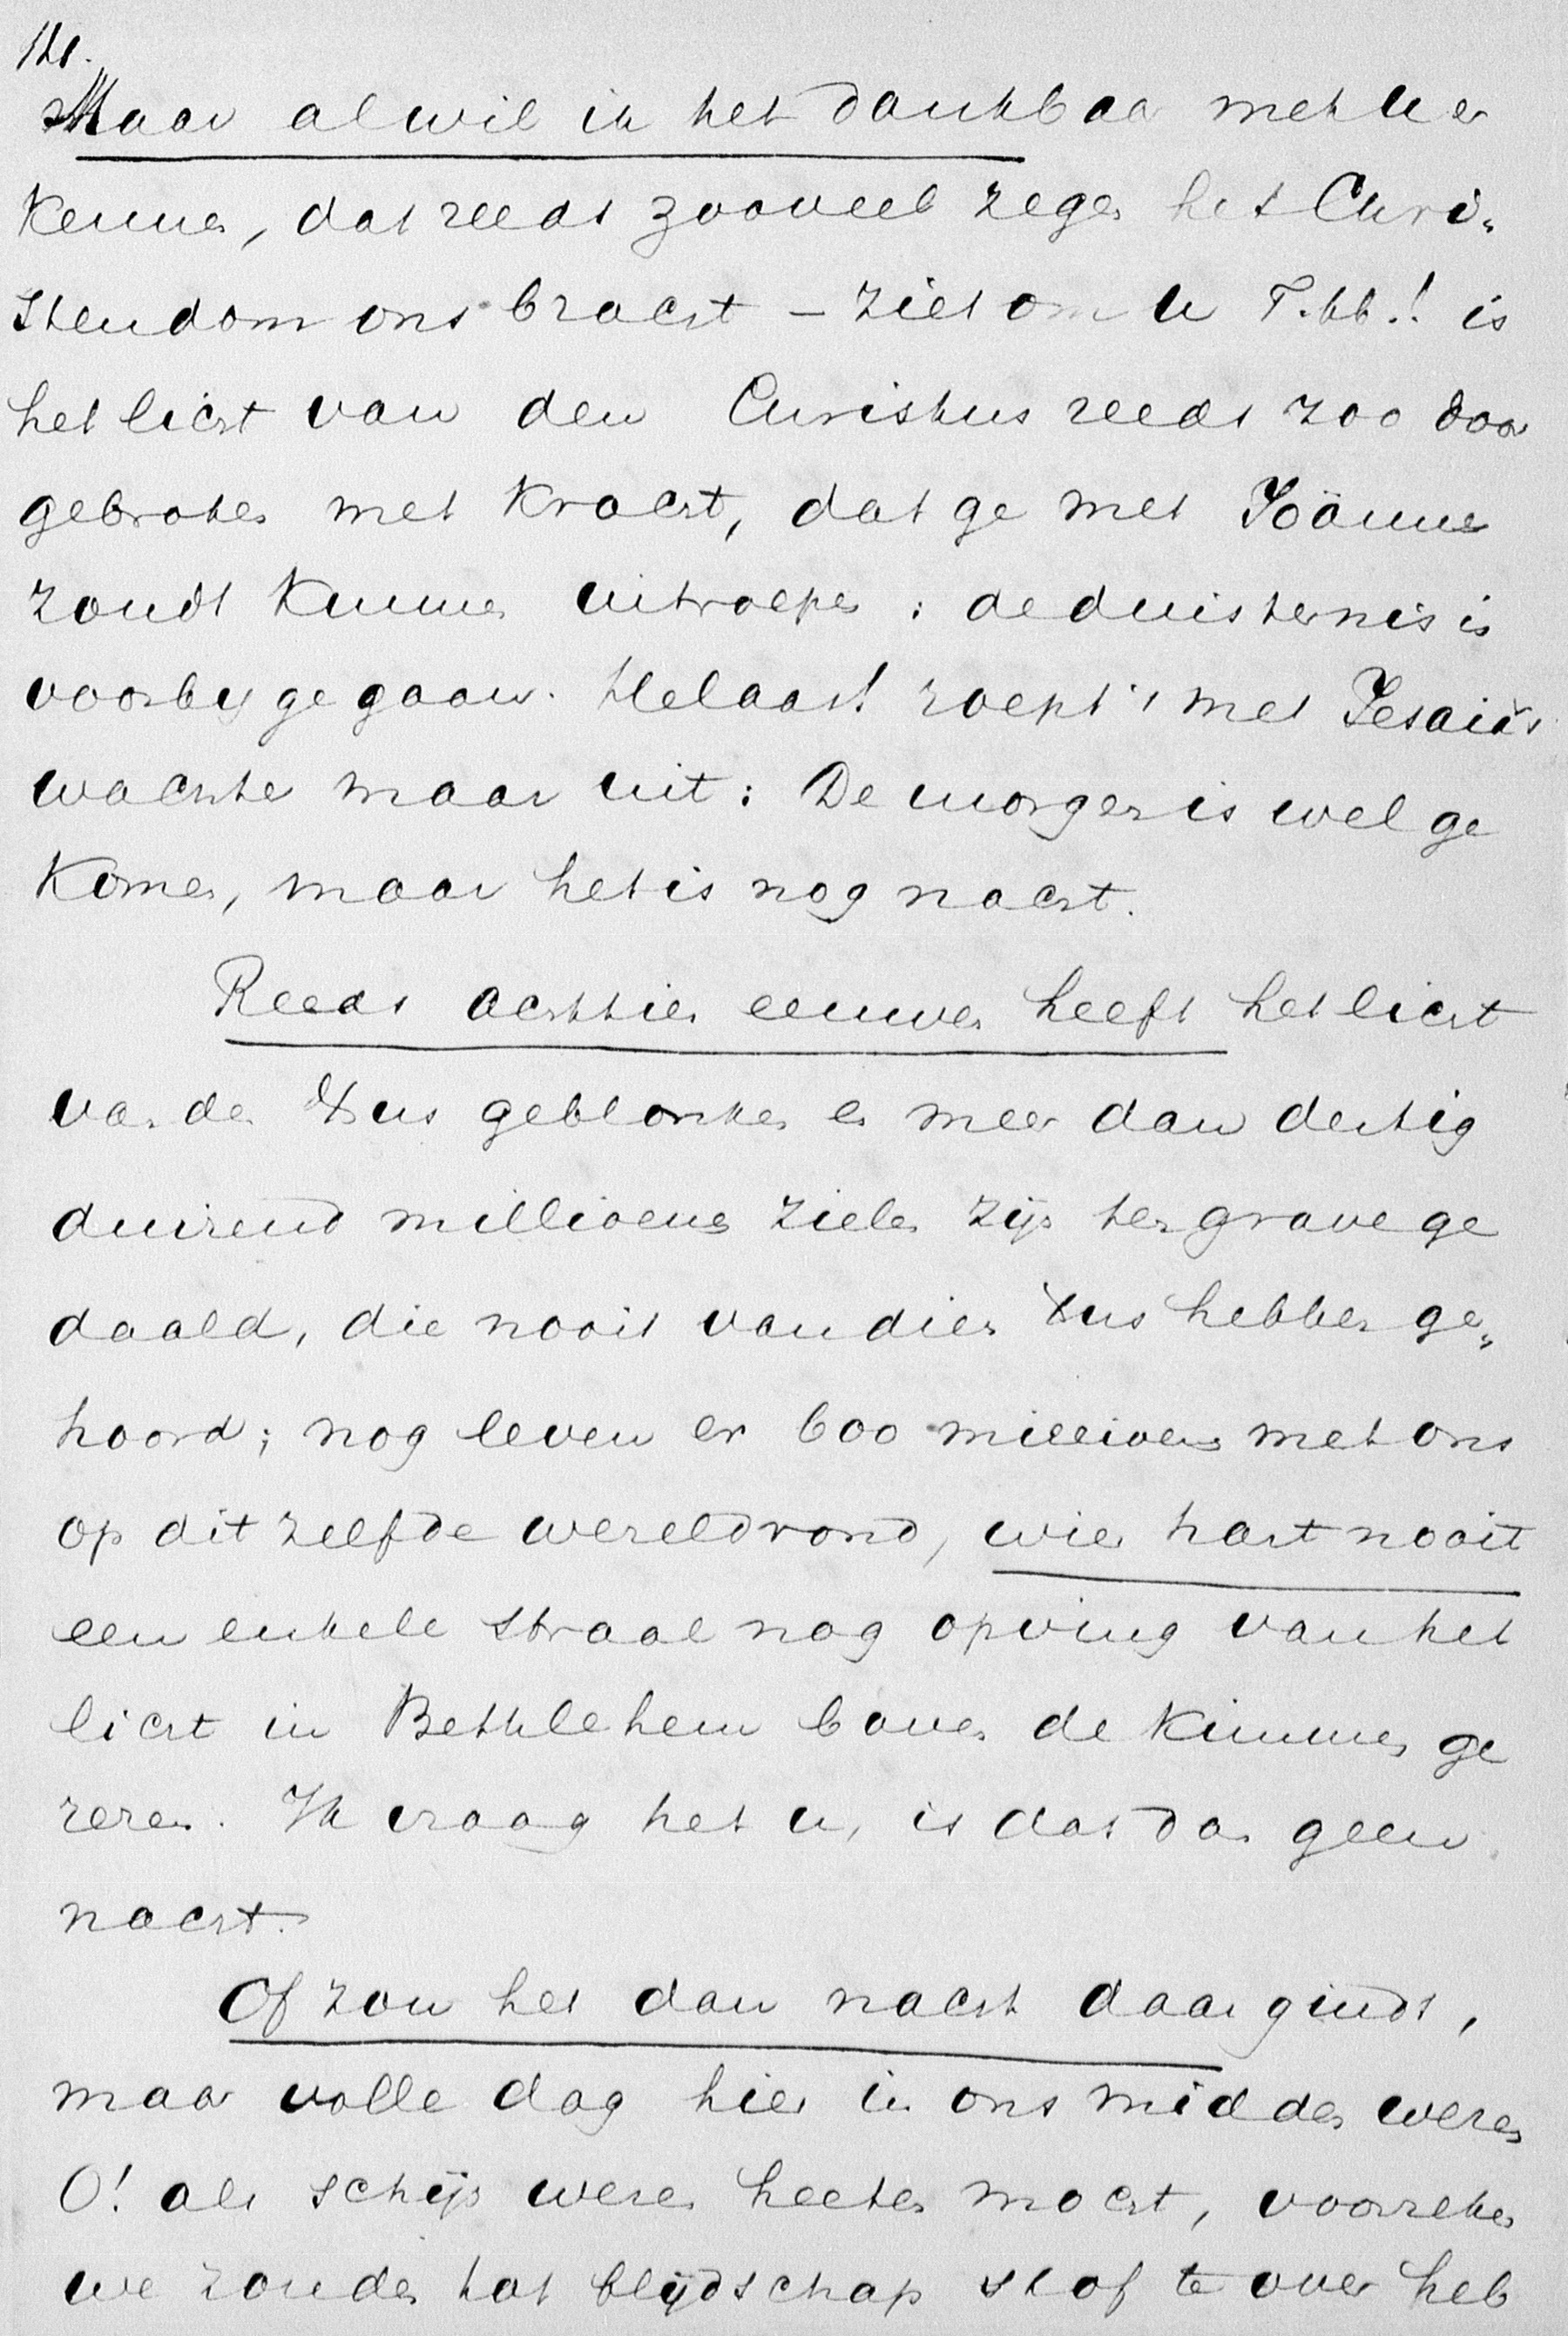 III.
Maar al wil ik het dankbaar met u er
kennen, dat reeds zooveel zegen het Chri-
stendom ons bracht – ziet om u T.hh.! is
het licht van den Christus reeds zoo door
gebroken met kracht, dat ge met Joännes
zoudt kunnen uitroepen: de duisternis is
voorbij gegaan. Helaas! roept 's met Jesaiä's
wachter maar uit: De morgen is wel ge
komen, maar het is nog nacht.
Reeds achttien eeuwen heeft het licht
van den Xtus geblonken en meer dan dertig
duizend millioenen zielen zijn ten grave ge
daald, die nooit van dien Xtus hebben ge-
hoord; nog leven er 600 millioen met ons
op dit zelfde wereldrond, wier hart nooit
een enkele straal nog opving van het
licht in Bethlehem boven de kimmen ge
rezen. Ik vraag het u, is dat dan geen
nacht.
Of zou het dan nacht daar ginds,
maar volle dag hier in ons midden wezen
O! als schijn wezen heeten mocht, voorzeker
we zouden tot blijdschap stof te over heb